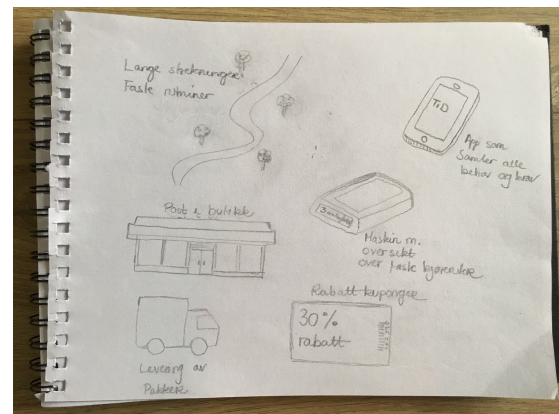 Lange strekninger
Faste rutiner
TiD
App som
Samler alle
behov og krav
Post i butikk
Maskin m.
oversikt
over faste kjørerutere
Rabatt kuponger
30%
rabatt
Levering av
Pakker